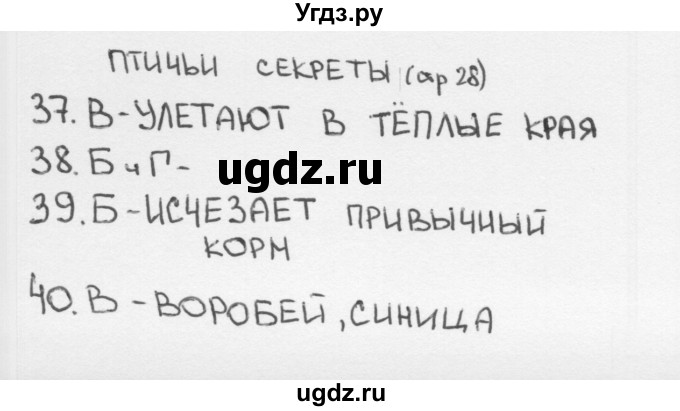 Угдз.ру
ПТИЧЬИ СЕКРЕТЫ (стр 28)
37. В - УЛЕТАЮТ В ТЁПЛЫЕ КРАЯ
38. Б и Г -
ugdz.ru
39. Б - ИСЧЕЗАЕТ ПРИВЫЧНЫЙ
КОРМ
40. В - ВОРОБЕЙ, СИНИЦА
ugdz.ru